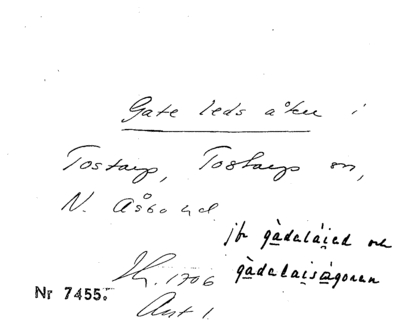 Gate leds åker i
Tostarp, Tostarps sn,
N. Åsbo hd
jfr gàdalàied och
gàdalaisàgonan
Hg. 1706
Nr 7455.
Ant 1.